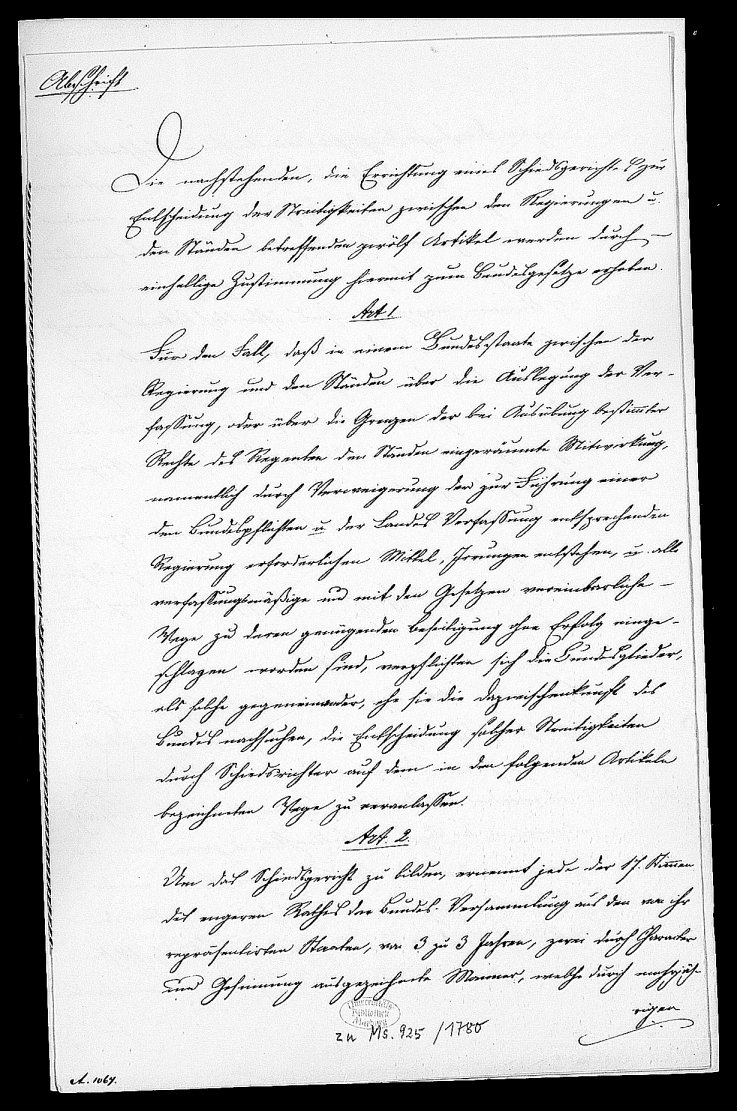 Abschrift
Die nachstehenden, die Errichtung eines Schiedsgerichts zur
Entscheidung der Streitigkeiten zwischen den Regierungen u.
den Ständen betreffenden zwölf Artikel werden durch
einhellige Zustimmung hiermit zum Bundesgesetze erhoben.
Art 1.
Für den Fall, daß in einem Bundesstaate zwischen der
Regierung und den Ständen über die Auslegung der Ver-
fassung, oder über die Grenzen der bei Ausübung bestimmter
Rechte des Regenten den Ständen eingeräumte Mitwirkung,
namentlich durch Verweigerung der zur Führung einer
den Bundespflichten u der Landes Verfassung entsprechenden
Regierung erforderlichen Mittel, Irrungen entstehen, u. alle
verfassungsmäßige und mit den Gesetzen vereinbarliche
Wege zu deren genügenden Beseitigung ohne Erfolg einge-
schlagen worden sind, verpflichten sich die Bundesglieder,
als solche gegeneinander, ehe sie die Dazwischenkunft des
Bundes nachsuchen, die Entscheidung solcher Streitigkeiten
durch Schiedsrichter auf dem in den folgenden Artikeln
bezeichneten Wege zu veranlassen.
Art. 2.
Um das Schiedsgericht zu bilden, ernennt jede der 17. Stimmen
des engeren Rathes der Bundes-Versammlung aus den von ihr
repräsentirten Staaten, von 3 zu 3 Jahren, zwei durch Character
und Gesinnung ausgezeichnete Männer, welche durch mehrjäh-
rigen
Universitäts
Bibliothek
Marburg
zu Ms. 925 / 1780
A. 1064.